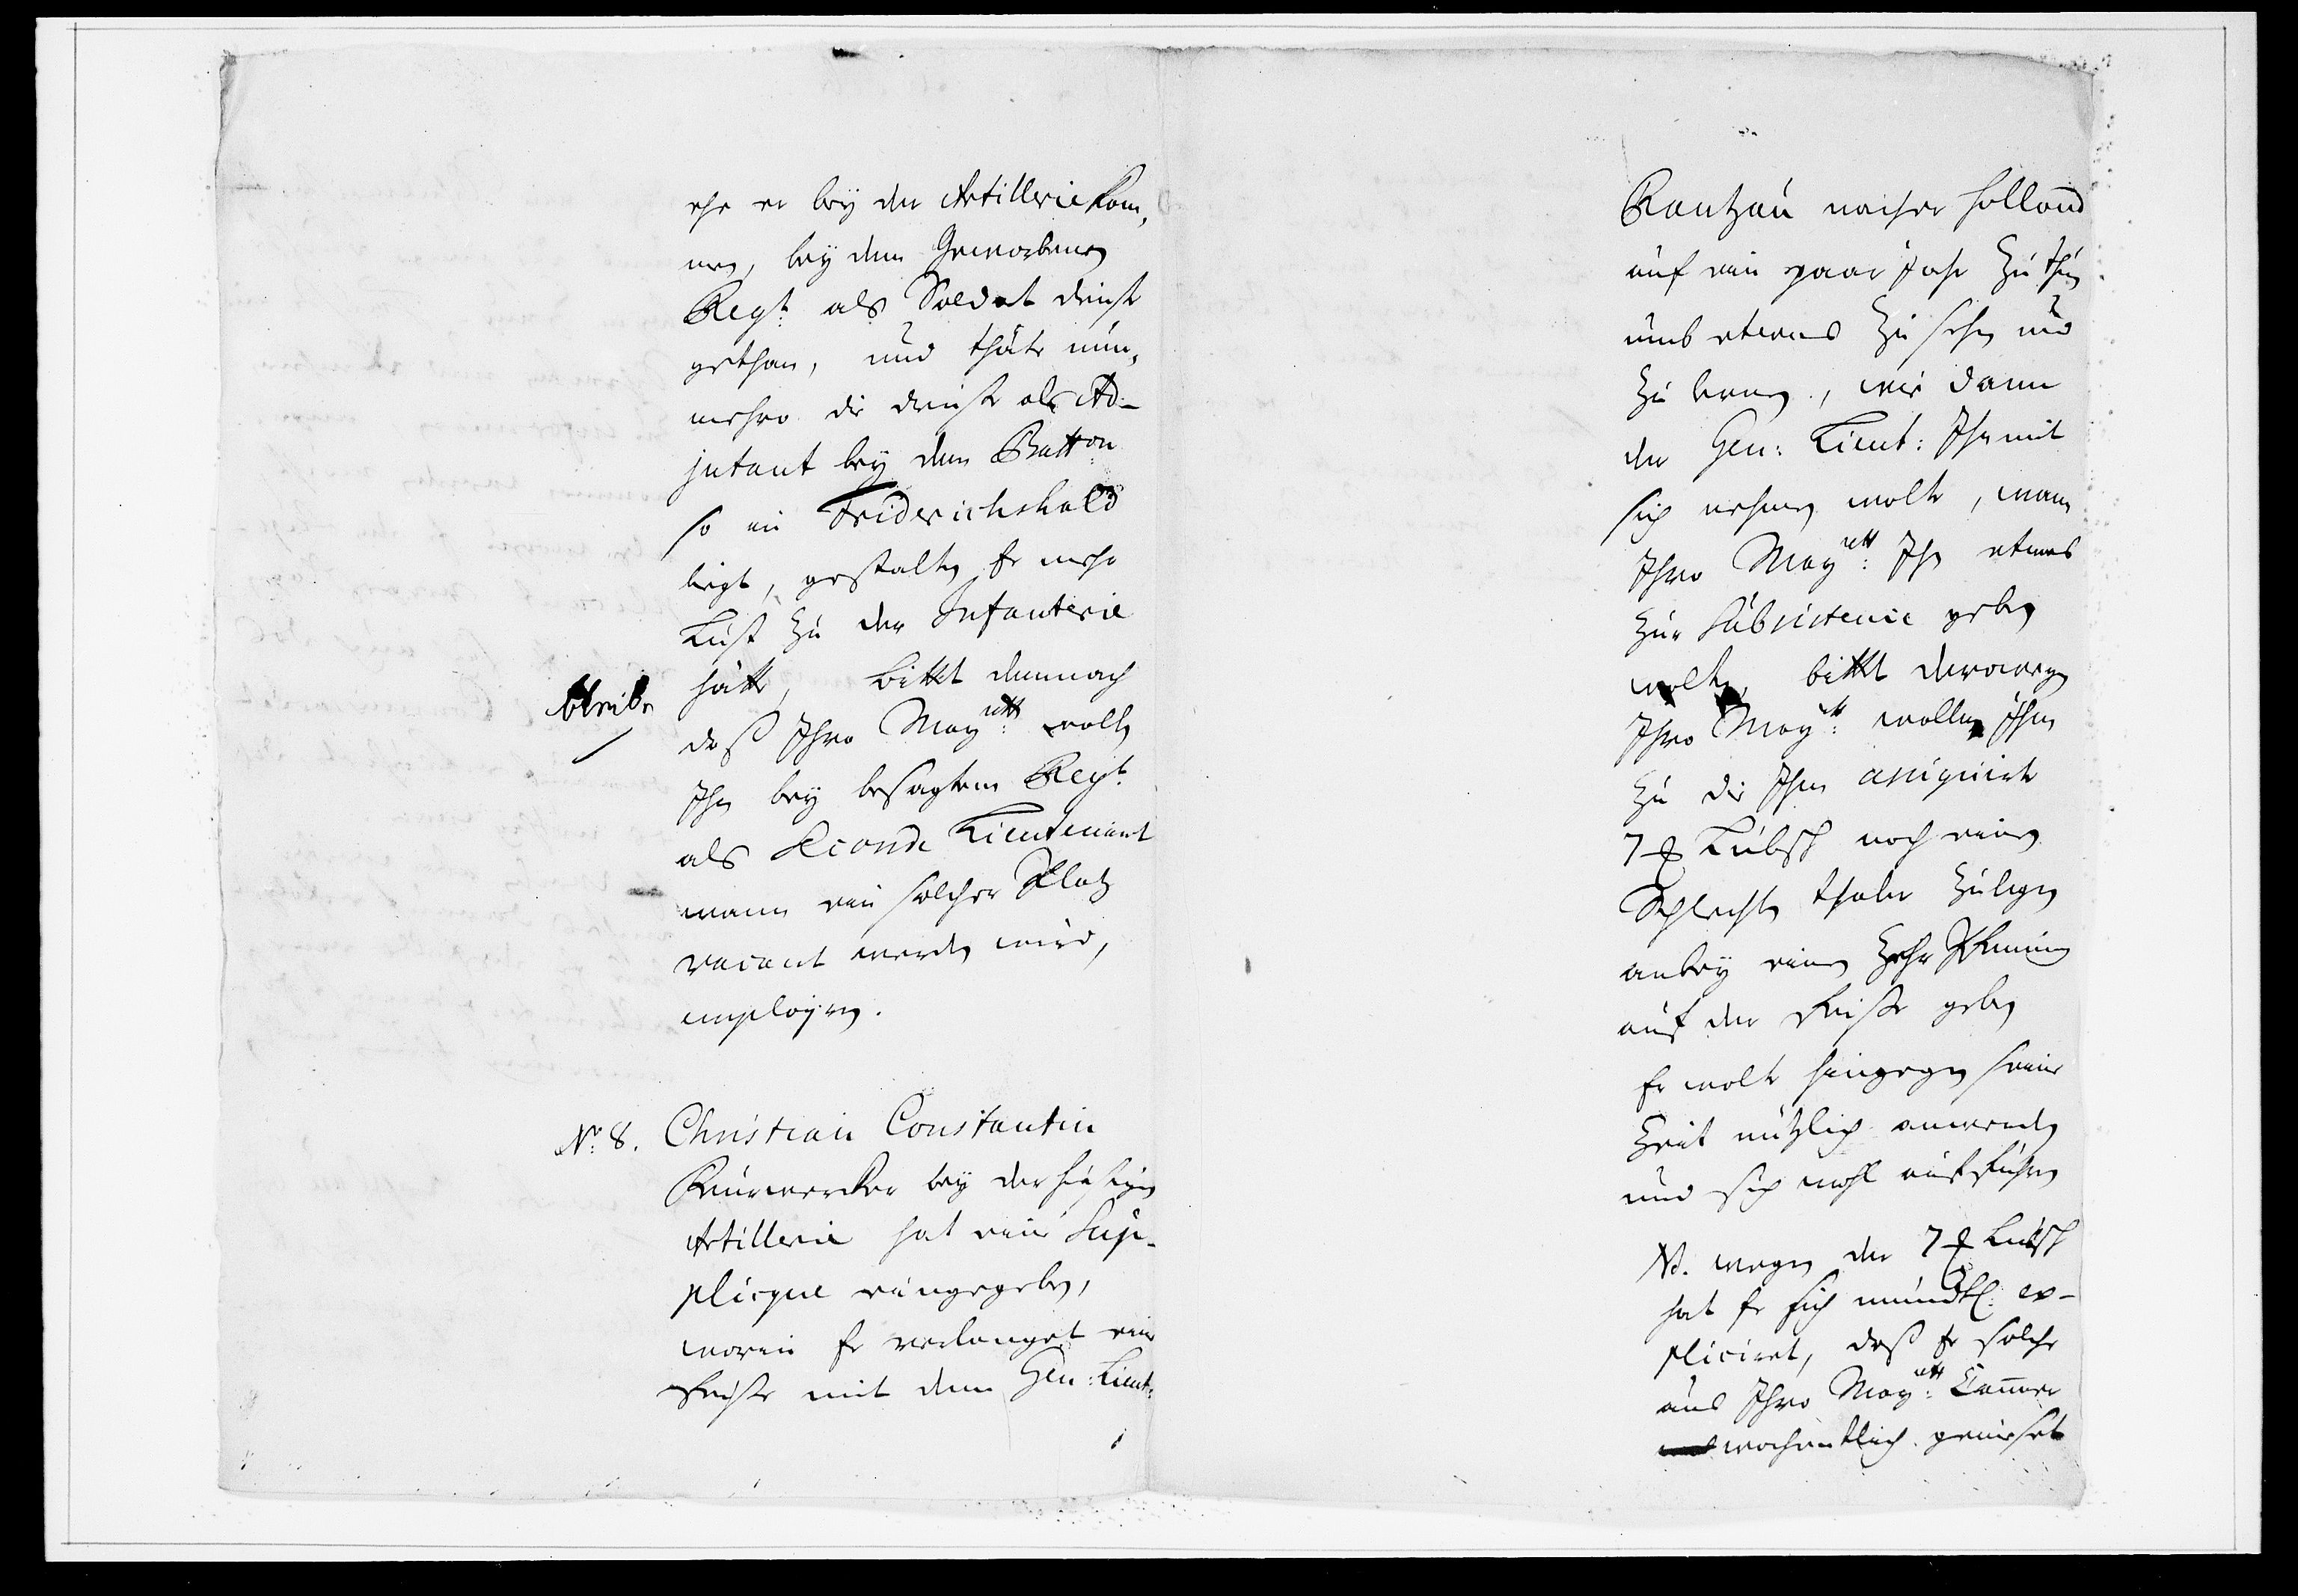 ehe er bey der Artillerie kom,
men, bey dem Geworbenen
Regt: als Soldat dienste
gethan, und thäte nun,
mehro die dienste als Ad-
jutant bey dem Batt:on
so in Friderichshald
liegt, gestalten Er mehr
Lust zu der Infanterie
hätte, bittet demnach
bleibe
daß Ihro Mayett: wolte
Ihn bey besagtem Regt:
als Seconde Lieutenant
wann ein solcher Platz
vacant werden wird,
employren.
No: 8. Christian Constantin
Feuerwercker bey der hiesigen
Artillerie hat eine Sup-
plique eingegeben,
worin Er verlanget eine
Reise mit dem Gen: Lieut:
Rantzau nacher Holland
auf ein paar Jahr zu thun
umb etwas zu sehen und
zu lernen, wie dann
der Gen: Lieut: Ihn mit
sich nehmen wolte, wann
Ihro Mayett: Ihn etwas
zur Subsistence geben
wolten, bittet derowegen
Ihro Mayett: wollen Ihm
zu die Ihm assignirte
7 ß Lübsch noch einen
Schlechten thaler zulegen
anbey einen Zehr Pfenning
auf der Reise geben
Er wolte hingegen seine
Zeit nützlich anwenden
und sich wohl aufführen
NB. wegen der 7 ß Lübsch
hat Er sich mündtl: ex-
pliciret, daß Er solche
aus Ihro Mayett: Cammer
wochentlich genießet